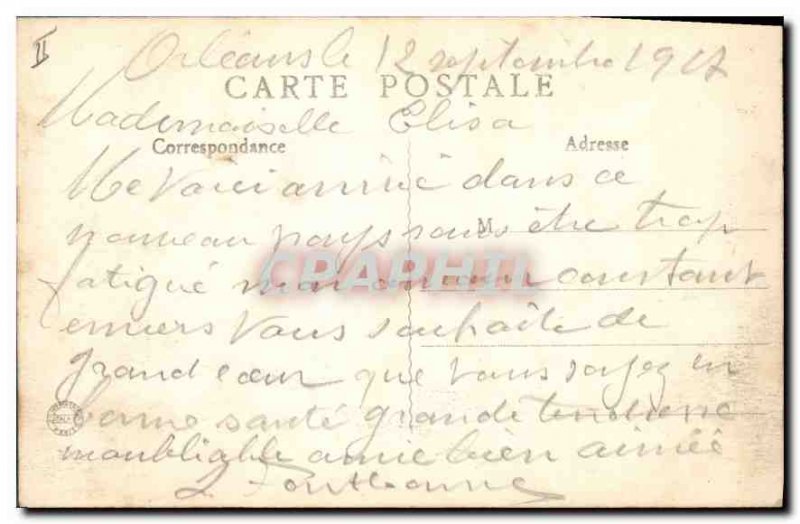 II
Orléans le 12 septembre 1917
CARTE POSTALE
Mademoiselle Elisa
Correspondance
Adresse
Me Voici arrivé dans ce
nouveau pays sans être trop
M
fatigué mon constant
envers Vous souhaite de
grand cœur que vous soyez en
bonne santé grande tendresse
inoubliable amie bien aimée
CPAPHIL